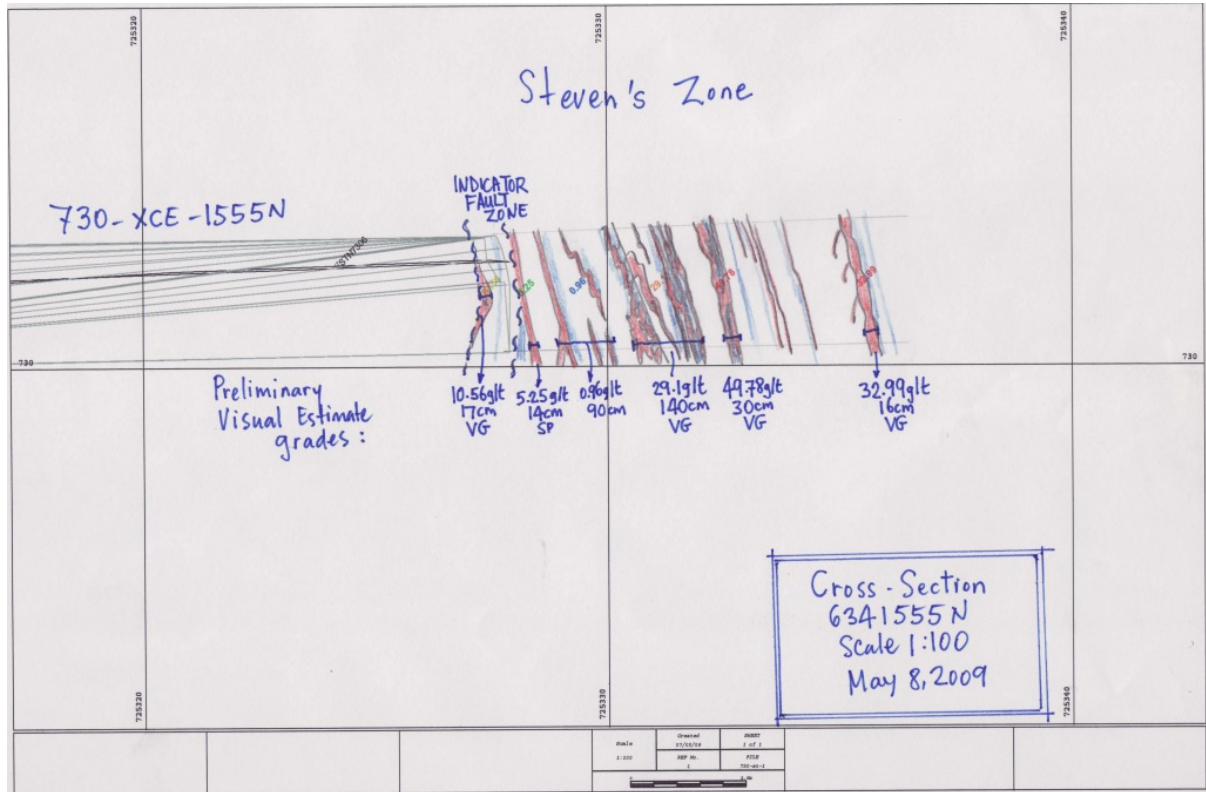 725320
725330
725340
Steven's Zone
730-XCE-1555N
INDICATOR
FAULT
ZONE
0.96
730
730
Preliminary
Visual Estimate
grades :
10.56g/t
17cm
VG
5.25g/t
14cm
SP
0.96g/t
90cm
29.1g/t
140cm
VG
49.78g/t
30cm
VG
32.99g/t
16cm
VG
Cross-Section
6341555N
Scale 1:100
May 8, 2009
725320
725330
725340
Scale
1:100
Created
SHEET
1 of 1
REF No.
1
FILE